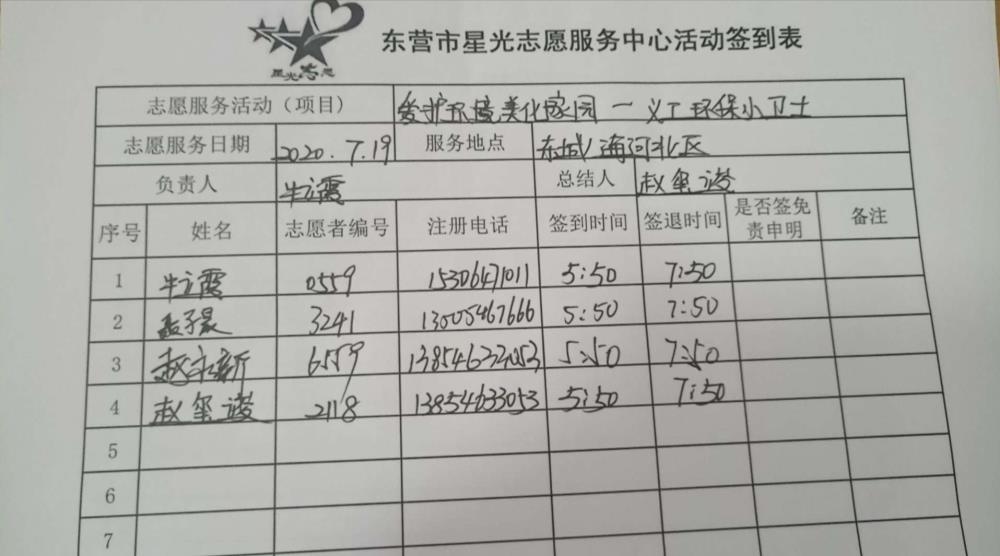 星光志愿
东营市星光志愿服务中心活动签到表
志愿服务活动（项目） 爱护环境美化家园一义工环保小卫士
志愿服务日期 2020.7.19 服务地点 东城海河北区
负责人 牛立霞 总结人 赵玺谚
序号 姓名 志愿者编号 注册电话 签到时间 签退时间 是否签免责申明 备注
1 牛立霞 0559 15306471011 5:50 7:50
2 孟子晨 3241 13005467666 5:50 7:50
3 赵永新 6559 13854633053 5:50 7:50
4 赵玺谚 2118 13854633053 5:50 7:50
5
6
7